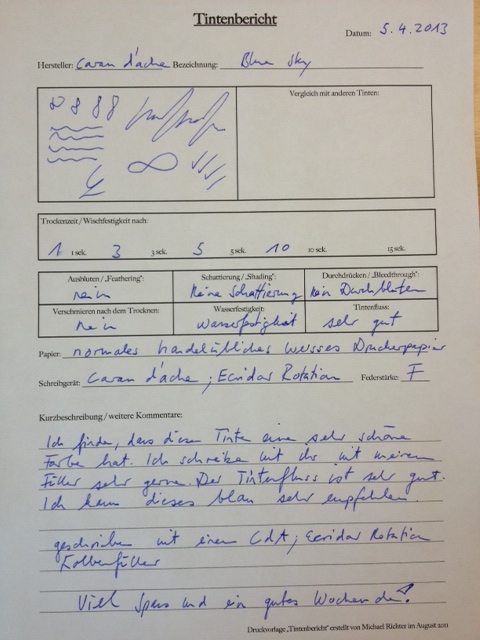 Tintenbericht
Datum: 5.4.2013
Hersteller: Caran d'ache Bezeichnung: Blue Sky
Vergleich mit anderen Tinten:
Trockenzeit / Wischfestigkeit nach:
1 1 sek. 3 3 sek. 5 5 sek. 10 10 sek. 15 sek.
Ausbluten / „Feathering": Schattierung / „Shading": Durchdrücken / „Bleedthrough":
nein Keine Schattierung kein Durchbluten
Verschmieren nach dem Trocknen: Wasserfestigkeit: Tintenfluss:
nein Wasserfestigkeit sehr gut
Papier: normales handelübliches weisses Druckerpapier
Schreibgerät: Caran d'ache ; Ecridor Rotation Federstärke: F
Kurzbeschreibung / weitere Kommentare:
Ich finde, dass diese Tinte eine sehr schöne
Farbe hat. Ich schreibe mit ihr mit meinem
Füller sehr gerne. Der Tintenfluss ist sehr gut.
Ich kann dieses blau sehr empfehlen.
geschrieben mit einem CdA ; Ecridor Rotation
Kolbenfüller
Viel Spass und ein gutes Wochenende!
Druckvorlage „Tintenbericht" erstellt von Michael Richter im August 2011